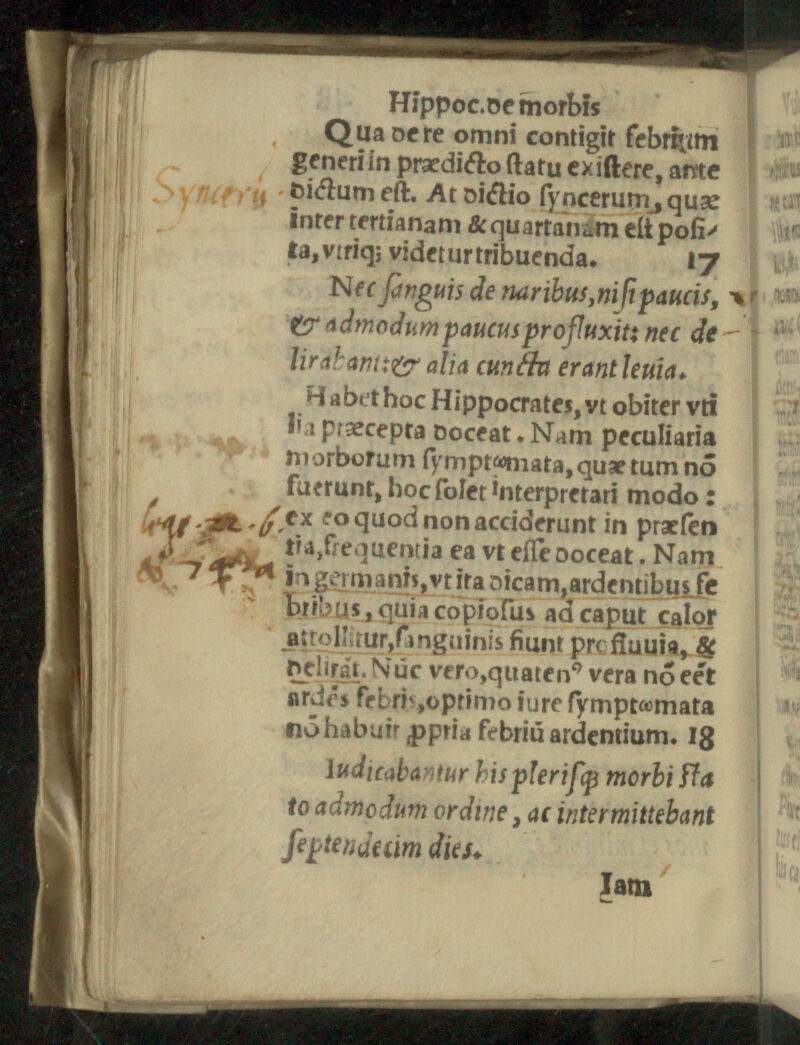 Hippoc.de morbis
Qua de re omni contigit febrium
generi in prædicto ſtatu exiſtere, ante
dictum eſt. At dictio ſyncerum, quæ
inter tertianam & quartanam eſt poſi-
ta, vtriq; videtur tribuenda. 17
Nec ſanguis de naribus, niſi paucis,
& admodum paucus profluxit: nec de-
lirabant: & alia cuncta erant leuia.
Habet hoc Hippocrates, vt obiter vti
lia præcepta doceat. Nam peculiaria
morborum ſymptomata, quæ tum nõ
fuerunt, hoc ſolet interpretari modo:
ex eo quod non acciderunt in præſen
tia, frequentia ea vt eſſe doceat. Nam
in germanis, vt ita dicam, ardentibus fe
bribus, quia copioſus ad caput calor
attollitur, ſanguinis fiunt profluuia, &
delirãt. Nũc vero, quatenꝰ vera nõ eẽt
ardẽs febris, optimo iure ſymptomata
nõ habuit ꝓpria febriũ ardentium. 18
Iudicabantur his pleriſqꝫ morbi ſta
to admodum ordine, ac intermittebant
ſeptendecim dies.
Iam